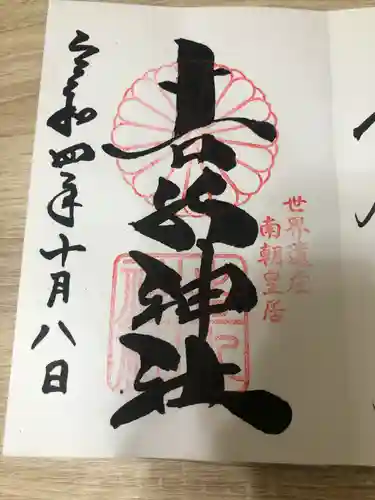 世界遺産
南朝皇居
吉水神社
令和四年十月八日